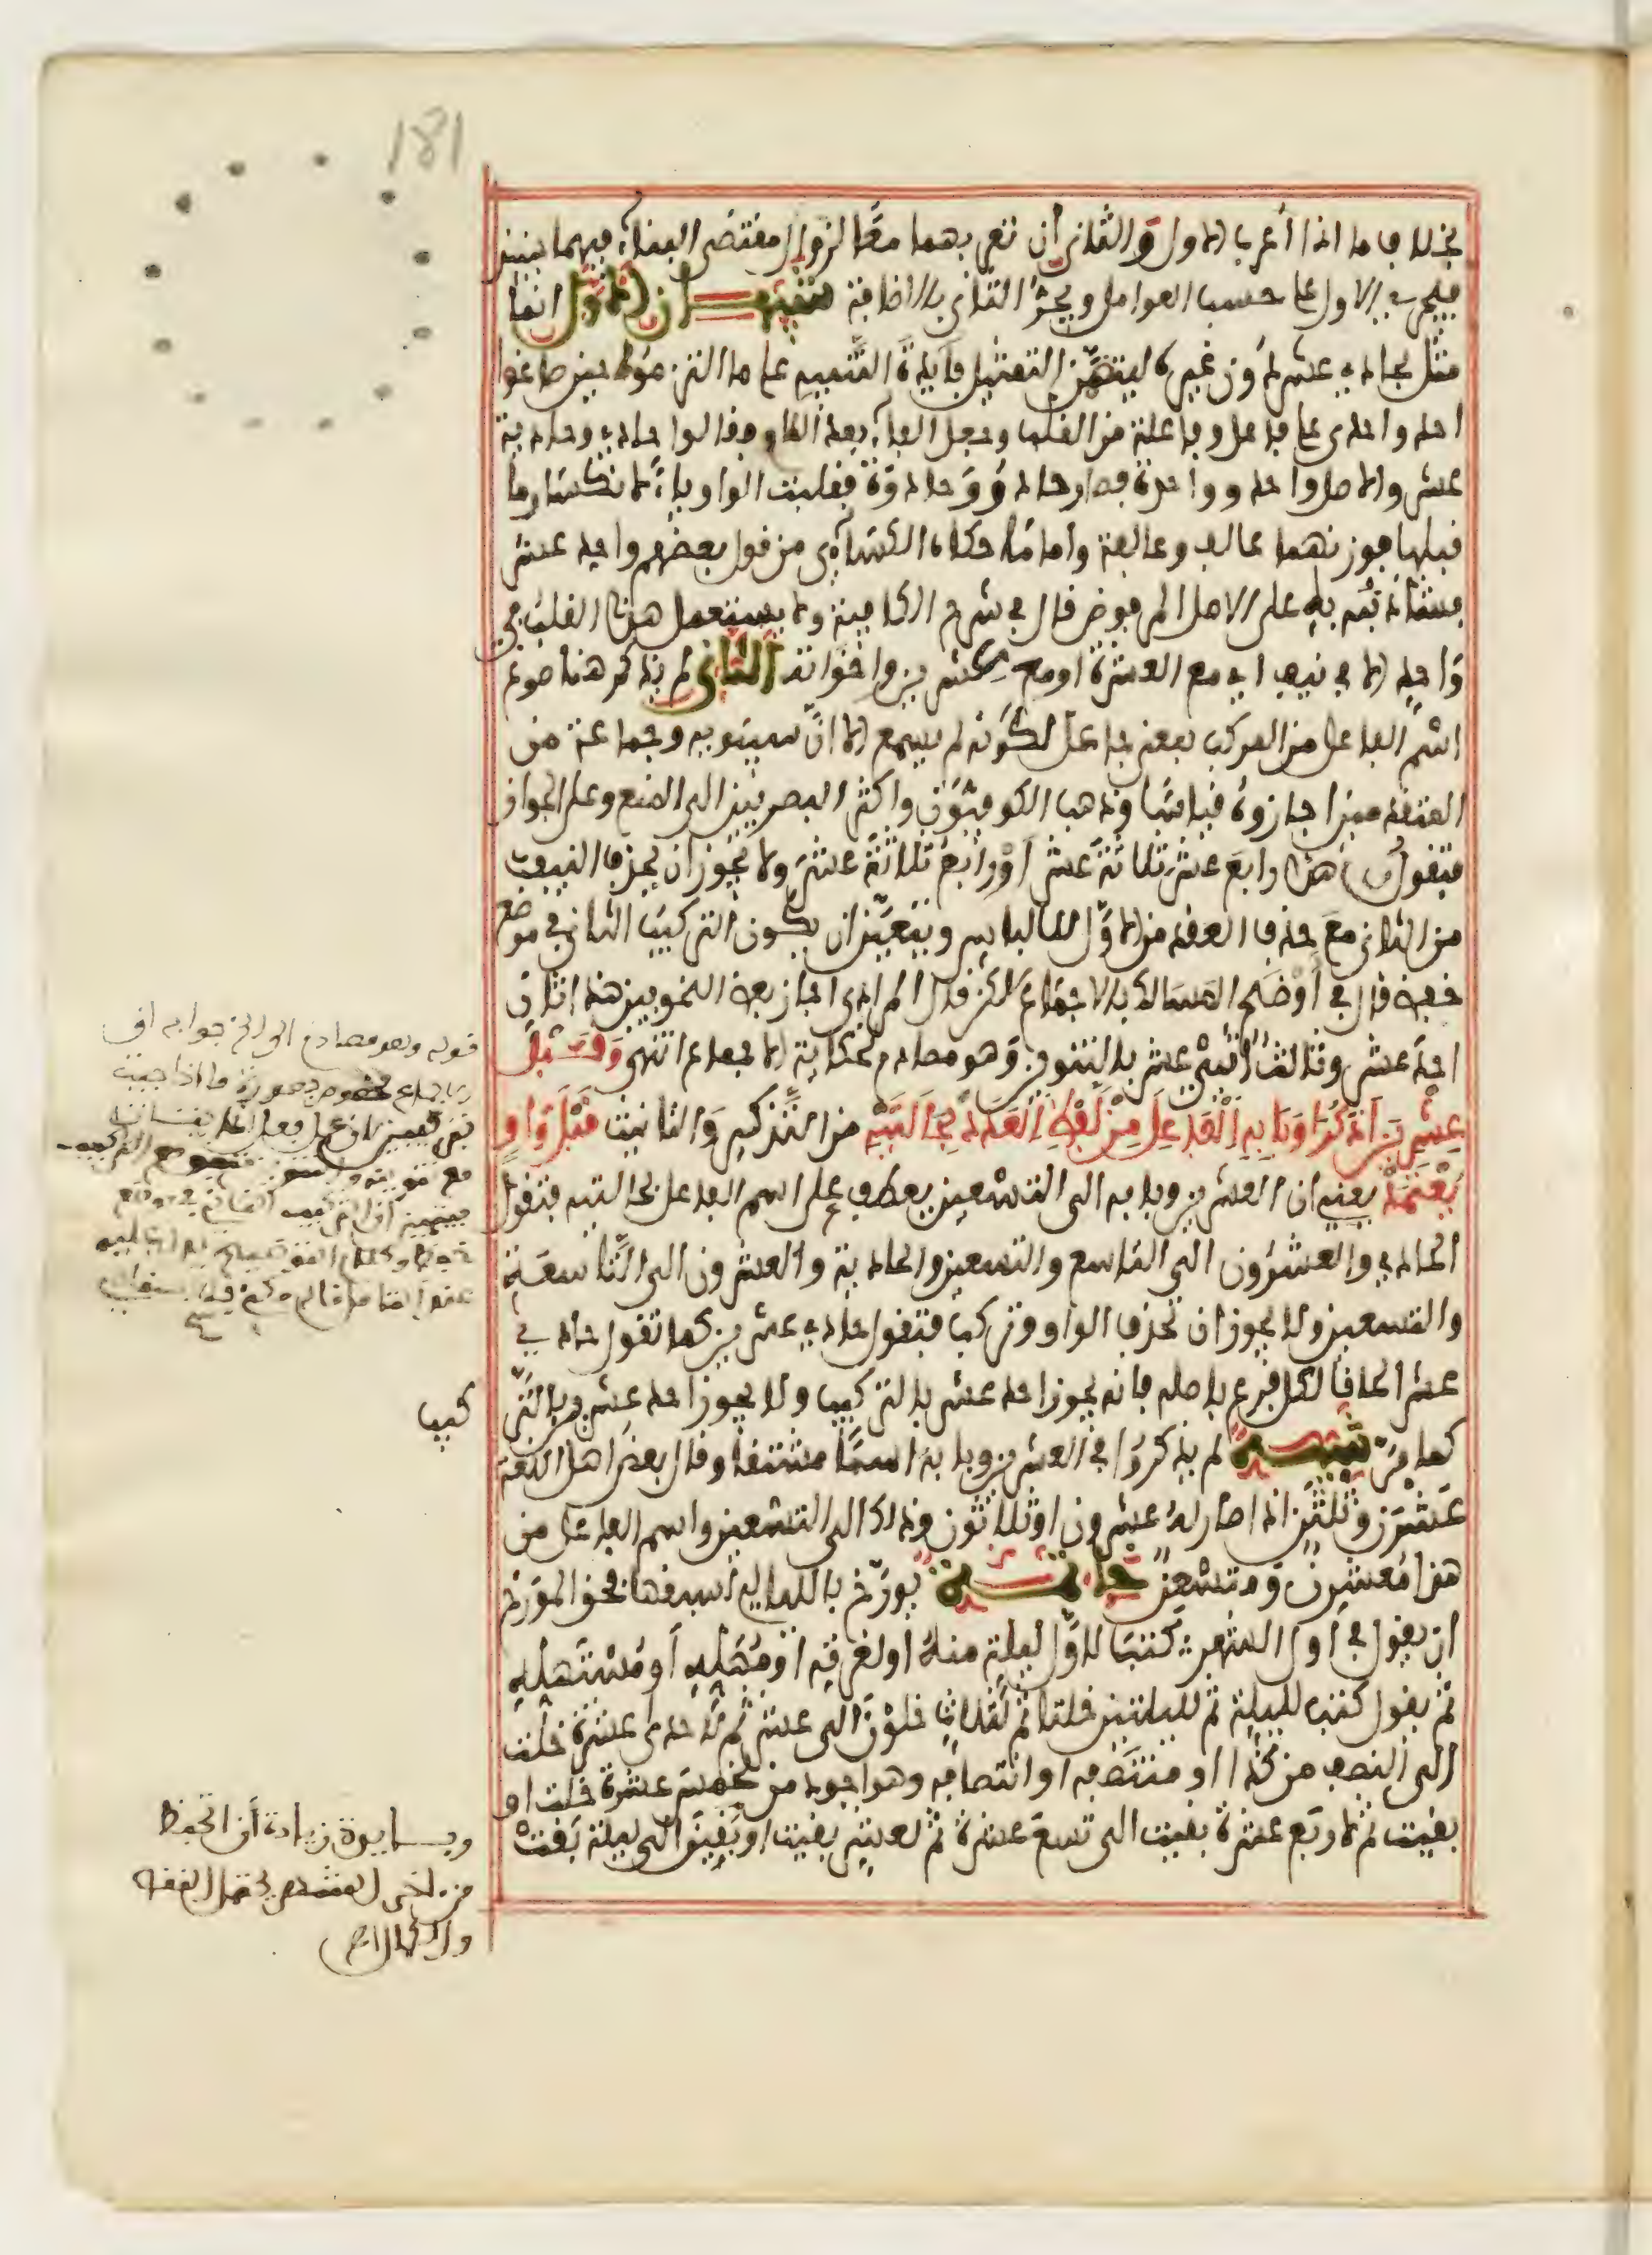 181
بخلاف ما اذا أعرب الاول والثاني أن تعربهما معا لزوال مقتضى البناء فيهما حينئذ
فيجري الاول على حسب العوامل ويجر الثاني بالاضافة تنبيهان الاول انما
مثل بحادي عشر دون غيره ليتضمن التمثيل فائدة التنبيه على ما التزموه حين صاغوا
احد واحدى على فاعل وفاعلة من القلب وجعل الفاء بعد اللام فقالوا حادي وحادية
عشر والاصل واحد وواحدة فصار حادو وحادوة فقلبت الواو ياء لانكسار ما
قبلها فوزنهما عالف وعالفة واما ما حكاه الكسائي من قول بعضهم واحد عشر
فشاذ نبه به على الاصل المرفوض قال في شرح الكافية ولا يستعمل هذا القلب في
واحد الا في تنييف اي مع العشرة او مع عشرين واخواته الثاني لم يذكر هنا صوغ
اسم الفاعل من المركب بمعنى جاعل لكونه لم يسمع الا ان سيبويه وجماعة من
المتقدمين اجازوه قياسا وذهب الكوفيون واكثر البصريين الى المنع وعلى الجواز
فتقول هذا رابع عشر ثلاثة عشر او رابع ثلاثة عشر ولا يجوز ان يحذف النيف
من الثاني مع حذف العقد من الاول للالباس ويتعين ان يكون التركيب الثاني في موضع
خفض قال في أوضح المسالك بالاجماع لكن قال المرادي اجاز بعض النحويين هذا ثان
احد عشر وثالث اثني عشر بالتنوين وهو مصادم لحكاية الاجماع انتهى وقبل
عشرين اذكرا وبابه الفاعل من لفظ العدد بحالتيه من التذكير والتانيث قبل واو
يعتمد يعني ان العشرين وبابه الى التسعين يعطف على اسم الفاعل بحالتيه فتقول
الحادي والعشرون الى التاسع والتسعين والحادية والعشرون الى التاسعة
والتسعين ولا يجوز ان تحذف الواو وتركب فتقول حادي عشرين كما تقول حادي
عشر الحاقا لكل فرع باصله فانه يجوز احد عشر بالتركيب ولا يجوز احد عشرين بالتر
كيب
كما مر تنبيه لم يذكروا في العشرين وبابه اسما مشتقا وقال بعض اهل اللغة
عشرن وثلثن اذا صار له عشرون او ثلاثون وكذلك الى التسعين واسم الفاعل من
هذا معشرن ومتسعن خاتمة يورخ بالليالي لسبقها فحق المورخ
ان يقول في اول الشهر كتب لاول ليلة منه او لغرته او مهله او مستهله
ثم يقول كتب لليلة ثم لليلتين خلتا ثم لثلاث خلون الى عشر ثم لاحدى عشرة خلت
الى النصف من كذا او منتصفه او انتصافه وهو اجود من لخمس عشرة خلت او
بقيت ثم لاربع عشرة بقيت الى تسع عشرة ثم لعشر بقين او بقيت الى ليلة بقيت
قوله وهو مصادم الى الخ جوابه ان
وكلام التوضيح
من اخر